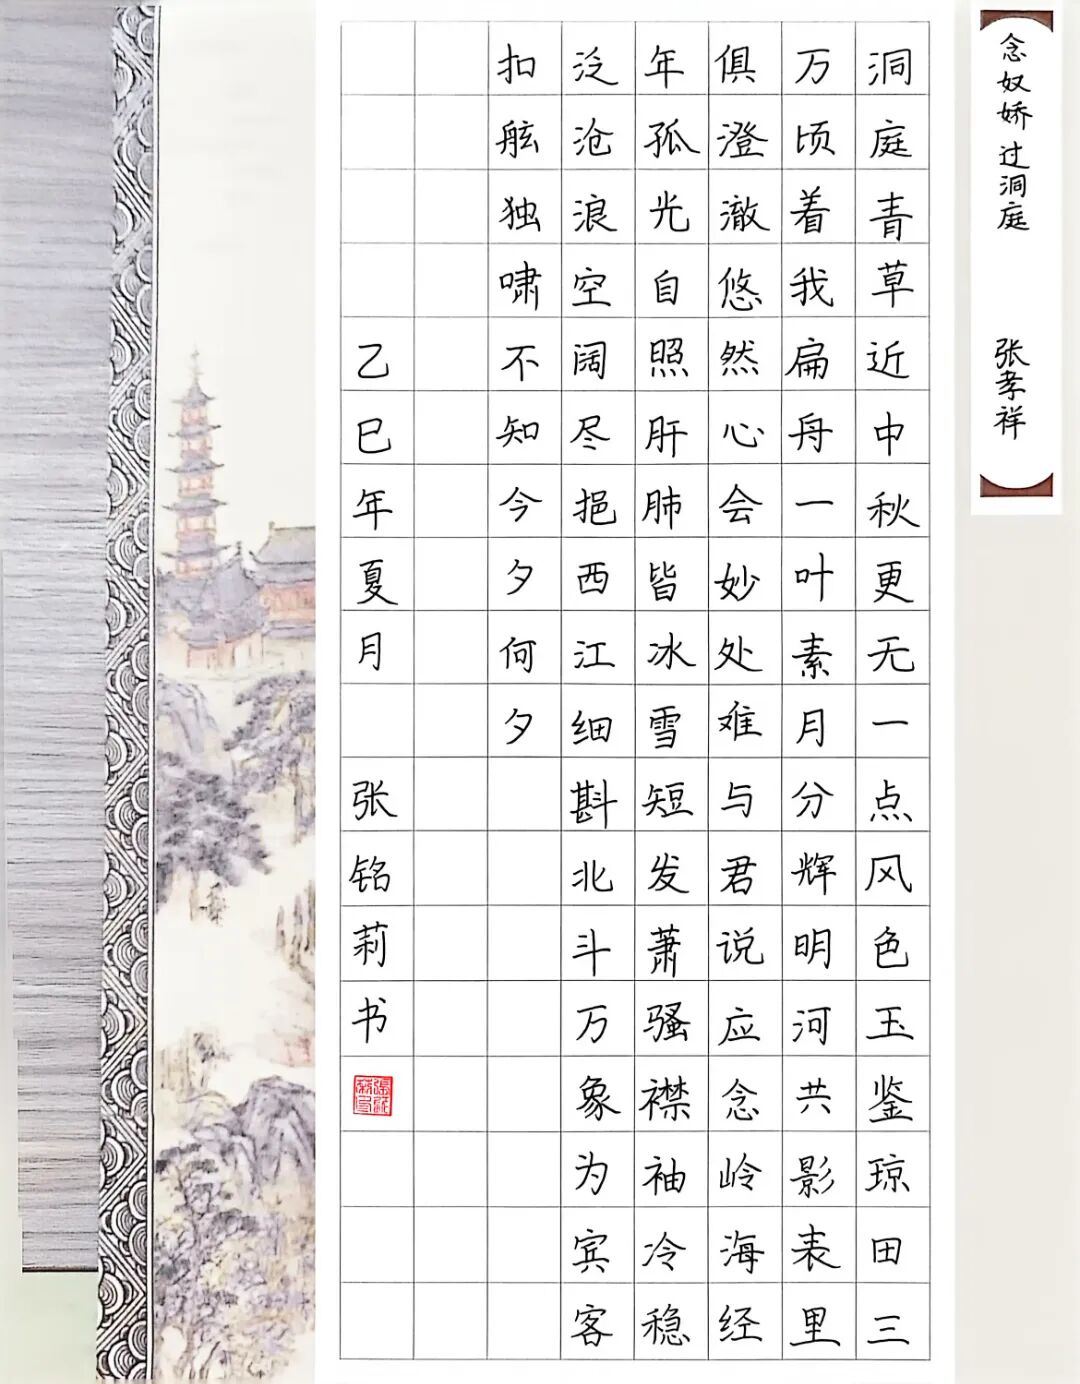 念奴娇过洞庭 张孝祥
洞庭青草近中秋更无一点风色玉鉴琼田三
万顷着我扁舟一叶素月分辉明河共影表里
俱澄澈悠然心会妙处难与君说应念岭海经
年孤光自照肝肺皆冰雪短发萧骚襟袖冷稳
泛沧浪空阔尽挹西江细斟北斗万象为宾客
扣舷独啸不知今夕何夕
乙巳年夏月 张铭莉书